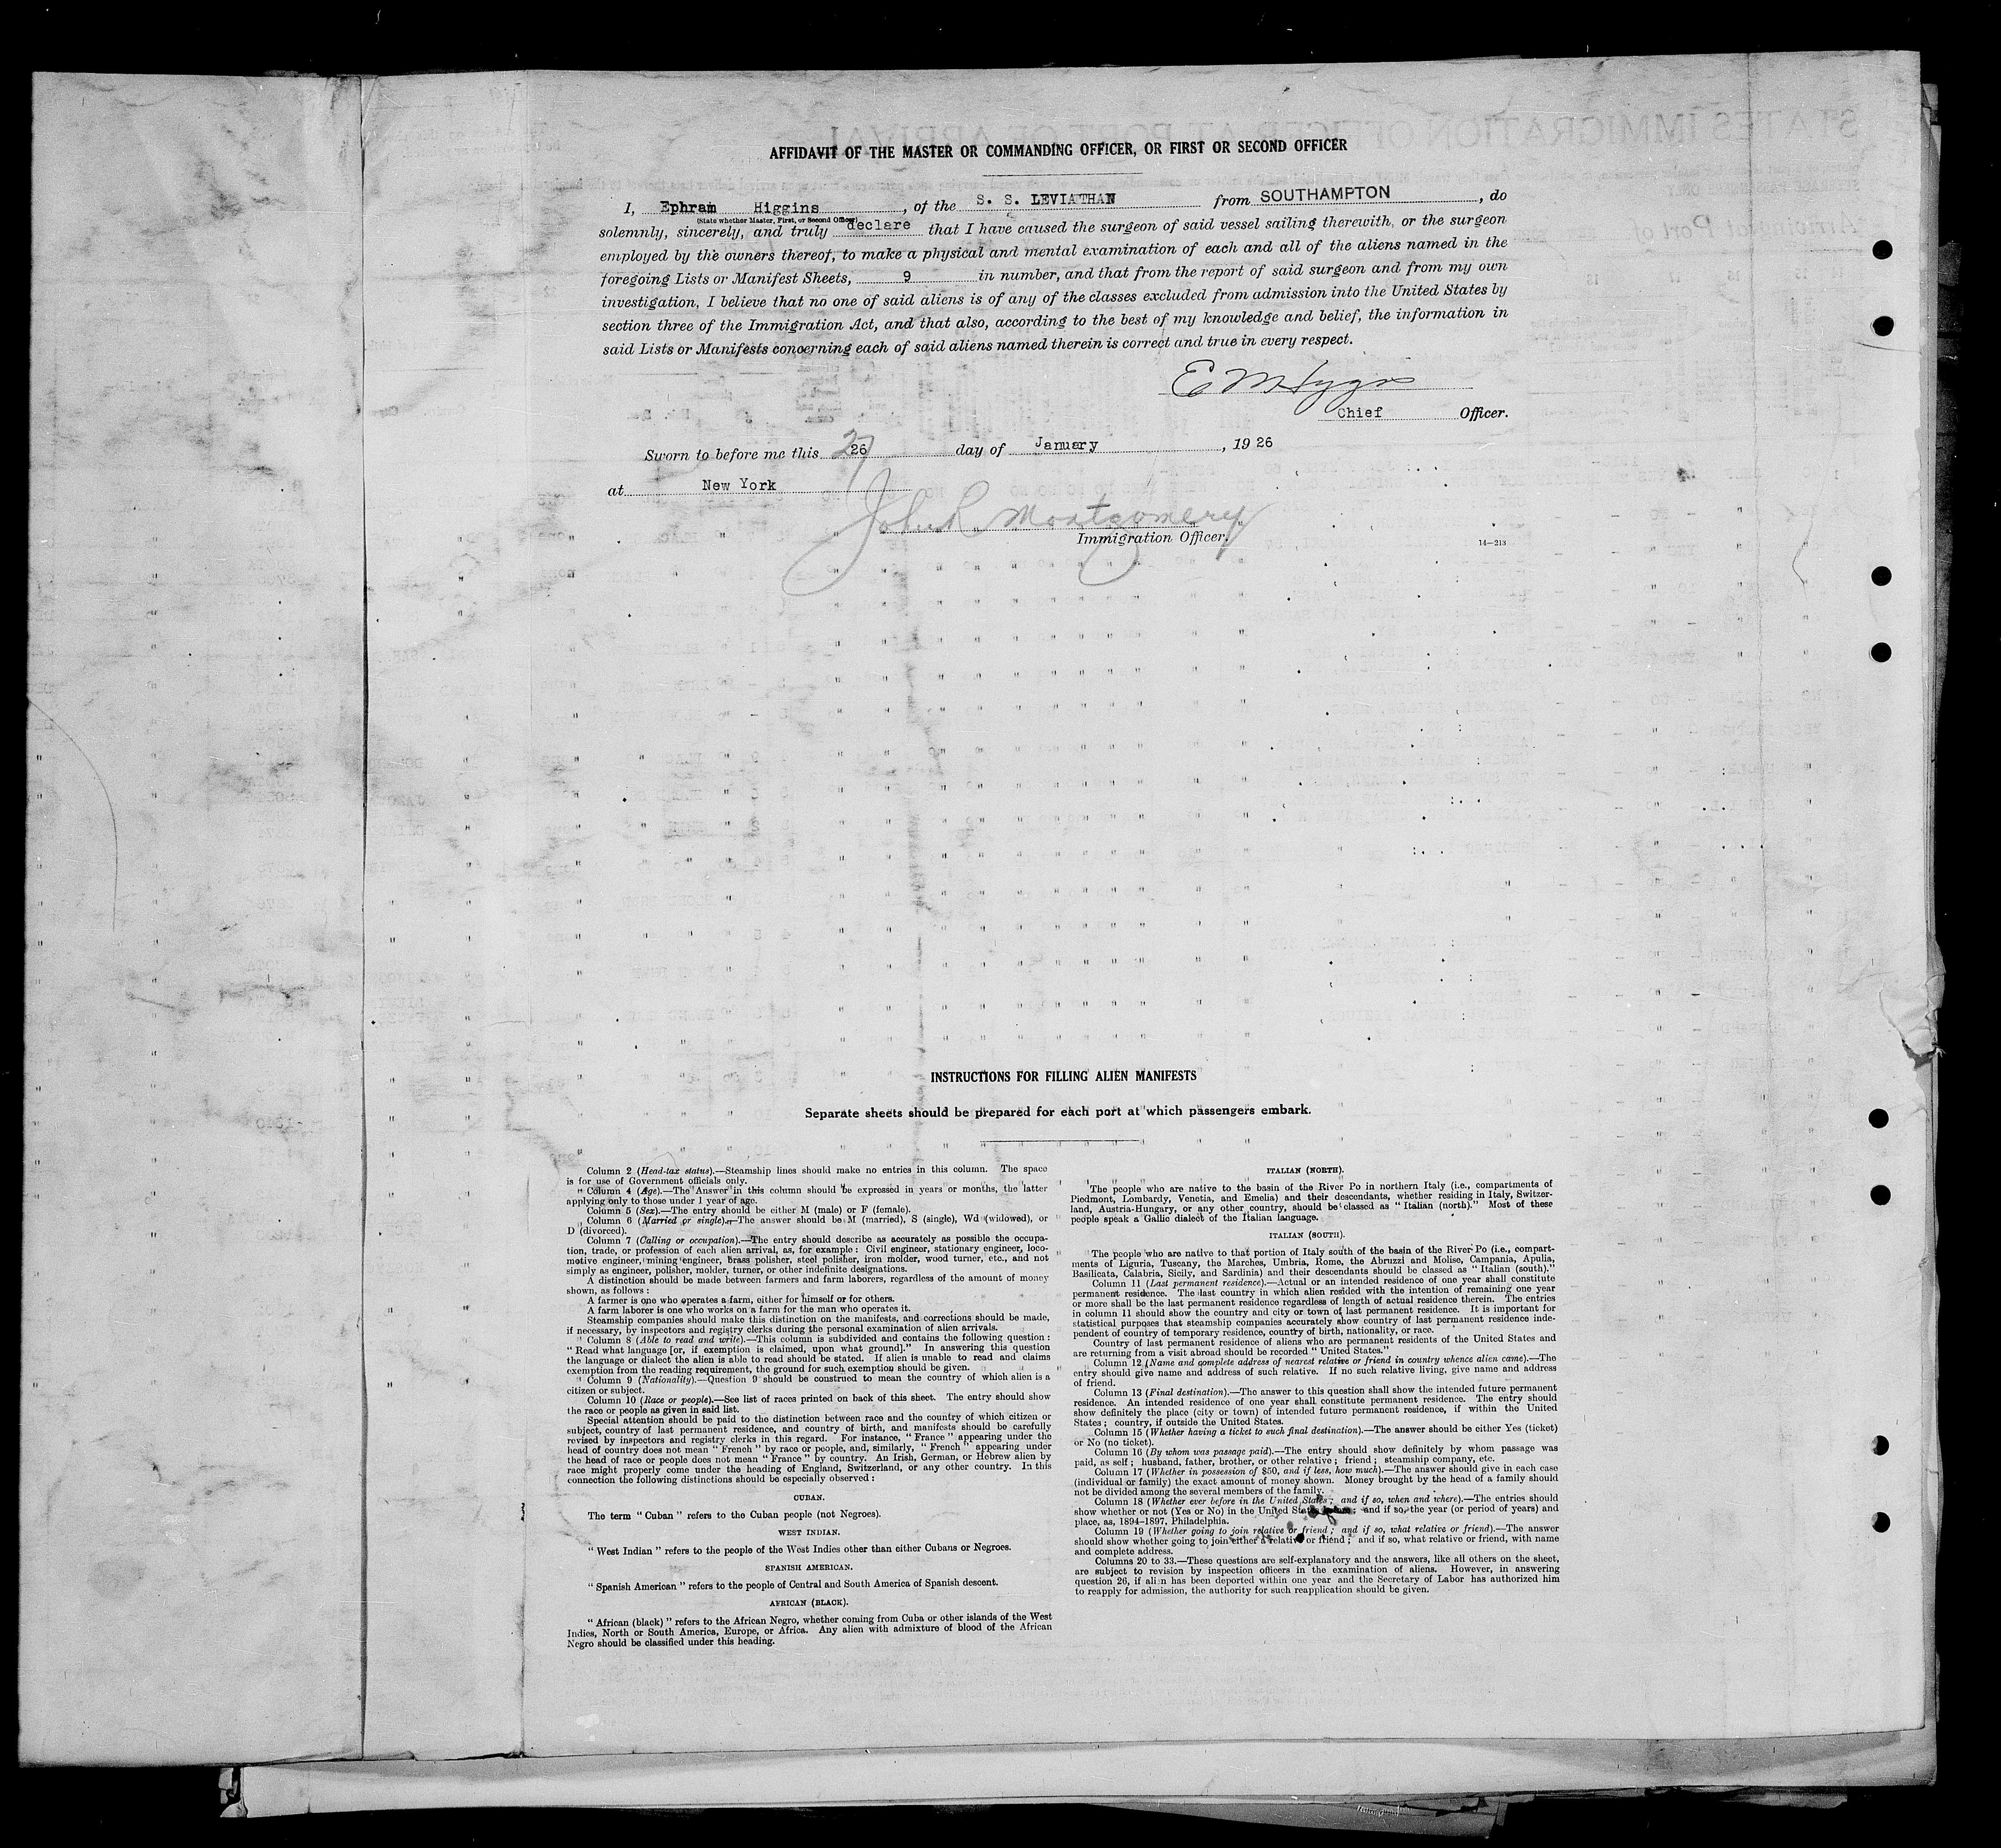 AFFIDAVIT OF THE MASTER OR COMMANDING OFFICER, OR FIRST OR SECOND OFFICER
I, Ephram Higgins, of the S. S. LEVIATHAN from SOUTHAMPTON, do
(State whether Master, First, or Second Officer)
solemnly, sincerely, and truly declare that I have caused the surgeon of said vessel sailing therewith, or the surgeon
employed by the owners thereof, to make a physical and mental examination of each and all of the aliens named in the
foregoing Lists or Manifest Sheets, 9 in number, and that from the report of said surgeon and from my own
investigation, I believe that no one of said aliens is of any of the classes excluded from admission into the United States by
section three of the Immigration Act, and that also, according to the best of my knowledge and belief, the information in
said Lists or Manifests concerning each of said aliens named therein is correct and true in every respect.
Chief Officer.
Sworn to before me this 26 27 day of January, 1926
at New York
John R. Montgomery
Immigration Officer.
14—213
INSTRUCTIONS FOR FILLING ALIEN MANIFESTS
Separate sheets should be prepared for each port at which passengers embark.
Column 2 (Head-tax status).—Steamship lines should make no entries in this column. The space
is for use of Government officials only.
Column 4 (Age).—The Answer in this column should be expressed in years or months, the latter
applying only to those under 1 year of age.
Column 5 (Sex).—The entry should be either M (male) or F (female).
Column 6 (Married or single).—The answer should be M (married), S (single), Wd (widowed), or
D (divorced).
Column 7 (Calling or occupation).—The entry should describe as accurately as possible the occupa-
tion, trade, or profession of each alien arrival, as, for example: Civil engineer, stationary engineer, loco-
motive engineer, mining engineer, brass polisher, steel polisher, iron molder, wood turner, etc., and not
simply as engineer, polisher, molder, turner, or other indefinite designations.
A distinction should be made between farmers and farm laborers, regardless of the amount of money
shown, as follows:
A farmer is one who operates a farm, either for himself or for others.
A farm laborer is one who works on a farm for the man who operates it.
Steamship companies should make this distinction on the manifests, and corrections should be made,
if necessary, by inspectors and registry clerks during the personal examination of alien arrivals.
Column 8 (Able to read and write).—This column is subdivided and contains the following question:
"Read what language [or, if exemption is claimed, upon what ground]." In answering this question
the language or dialect the alien is able to read should be stated. If alien is unable to read and claims
exemption from the reading requirement, the ground for such exemption should be given.
Column 9 (Nationality).—Question 9 should be construed to mean the country of which alien is a
citizen or subject.
Column 10 (Race or people).—See list of races printed on back of this sheet. The entry should show
the race or people as given in said list.
Special attention should be paid to the distinction between race and the country of which citizen or
subject, country of last permanent residence, and country of birth, and manifests should be carefully
revised by inspectors and registry clerks in this regard. For instance, "France" appearing under the
head of country does not mean "French" by race or people, and, similarly, "French" appearing under
the head of race or people does not mean "France" by country. An Irish, German, or Hebrew alien by
race might properly come under the heading of England, Switzerland, or any other country. In this
connection the following distinctions should be especially observed:
CUBAN.
The term "Cuban" refers to the Cuban people (not Negroes).
WEST INDIAN.
"West Indian" refers to the people of the West Indies other than either Cubans or Negroes.
SPANISH AMERICAN.
"Spanish American" refers to the people of Central and South America of Spanish descent.
AFRICAN (BLACK).
"African (black)" refers to the African Negro, whether coming from Cuba or other islands of the West
Indies, North or South America, Europe, or Africa. Any alien with admixture of blood of the African
Negro should be classified under this heading.
ITALIAN (NORTH).
The people who are native to the basin of the River Po in northern Italy (i.e., compartments of
Piedmont, Lombardy, Venetia, and Emelia) and their descendants, whether residing in Italy, Switzer-
land, Austria-Hungary, or any other country, should be classed as "Italian (north)." Most of these
people speak a Gallic dialect of the Italian language.
ITALIAN (SOUTH).
The people who are native to that portion of Italy south of the basin of the River Po (i.e., compart-
ments of Liguria, Tuscany, the Marches, Umbria, Rome, the Abruzzi and Molise, Campania, Apulia,
Basilicata, Calabria, Sicily, and Sardinia) and their descendants should be classed as "Italian (south)."
Column 11 (Last permanent residence).—Actual or an intended residence of one year shall constitute
permanent residence. The last country in which alien resided with the intention of remaining one year
or more shall be the last permanent residence regardless of length of actual residence therein. The entries
in column 11 should show the country and city or town of last permanent residence. It is important for
statistical purposes that steamship companies accurately show country of last permanent residence inde-
pendent of country of temporary residence, country of birth, nationality, or race.
Country of last permanent residence of aliens who are permanent residents of the United States and
are returning from a visit abroad should be recorded "United States."
Column 12 (Name and complete address of nearest relative or friend in country whence alien came).—The
entry should give name and address of such relative. If no such relative living, give name and address
of friend.
Column 13 (Final destination).—The answer to this question shall show the intended future permanent
residence. An intended residence of one year shall constitute permanent residence. The entry should
show definitely the place (city or town) of intended future permanent residence, if within the United
States; country, if outside the United States.
Column 15 (Whether having a ticket to such final destination).—The answer should be either Yes (ticket)
or No (no ticket).
Column 16 (By whom was passage paid).—The entry should show definitely by whom passage was
paid, as self; husband, father, brother, or other relative; friend; steamship company, etc.
Column 17 (Whether in possession of $50, and if less, how much).—The answer should give in each case
(individual or family) the exact amount of money shown. Money brought by the head of a family should
not be divided among the several members of the family.
Column 18 (Whether ever before in the United States; and if so, when and where).—The entries should
show whether or not (Yes or No) in the United States; and if so, the year (or period of years) and
place, as, 1894–1897, Philadelphia.
Column 19 (Whether going to join relative or friend; and if so, what relative or friend).—The answer
should show whether going to join either a relative or friend; and if so, what relative or friend, with name
and complete address.
Columns 20 to 33.—These questions are self-explanatory and the answers, like all others on the sheet,
are subject to revision by inspection officers in the examination of aliens. However, in answering
question 26, if alien has been deported within one year and the Secretary of Labor has authorized him
to reapply for admission, the authority for such reapplication should be given.